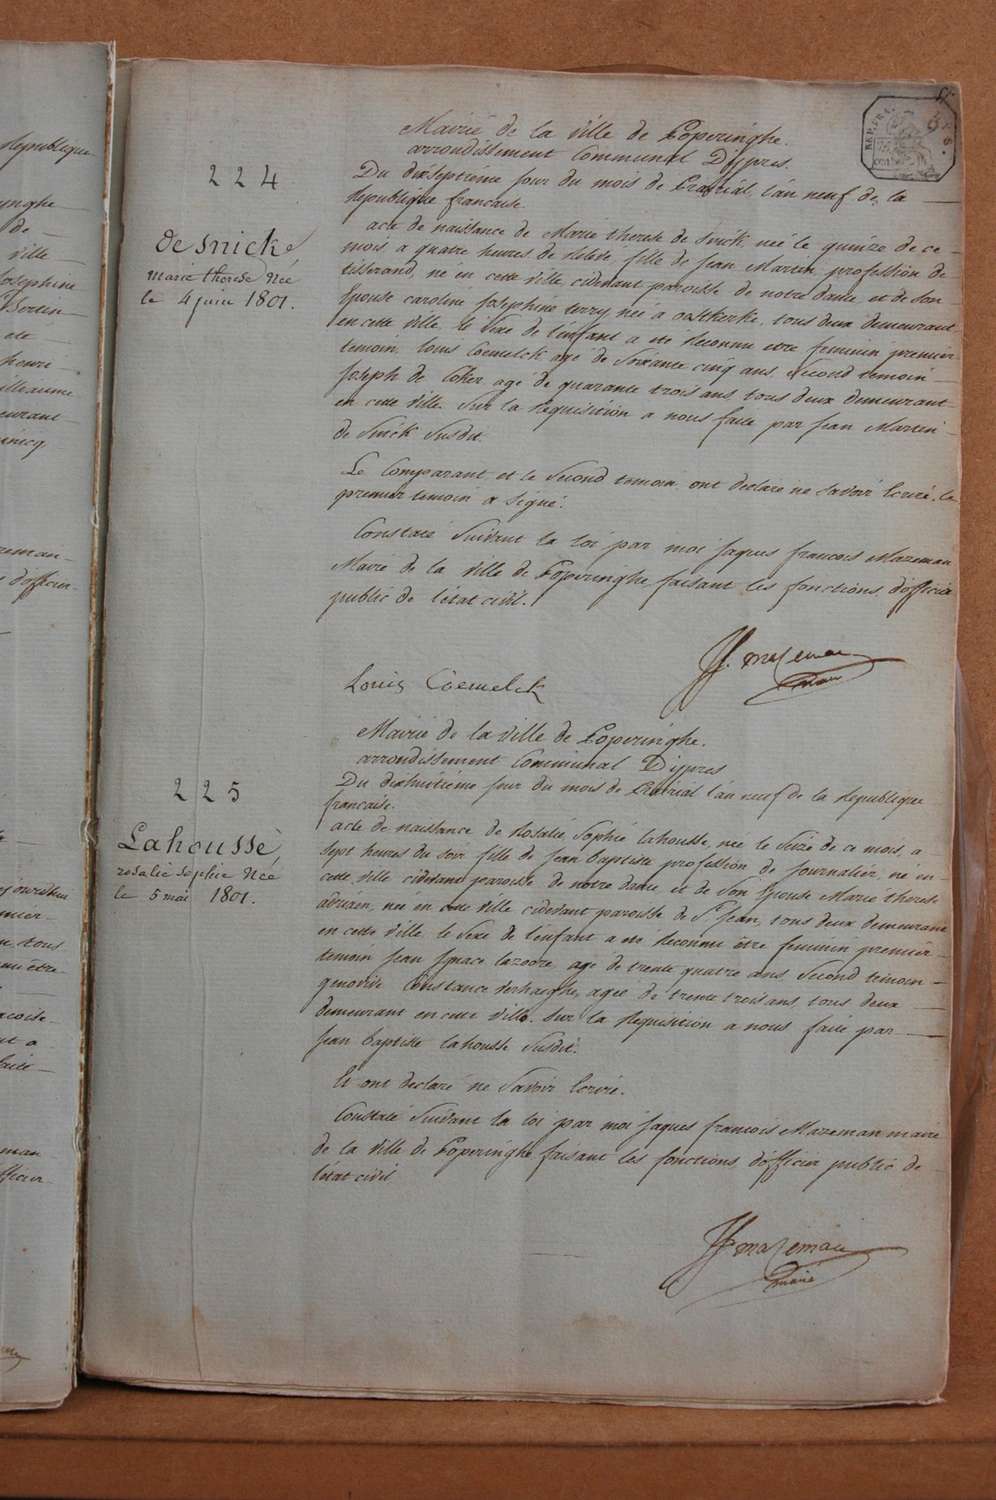 Republique
ynghe
de
ville
Josephine
Bertin
ete
henri
illeaume
eurant
REP. FRA.
224
Mairie de la ville de Poperinghe.
arrondissement Communal Dypres.
Du dixseptieme jour du mois de Prairial, l'an neuf de la
Republique francaise.
de Snick
marie therese Née
le 4 juin 1801.
acte de naissance de Marie therese de Snick née le quinze de ce
mois a quatre heures de fille de Jean Martin profession de
tisserand, né en cette ville, cidevant paroisse de notre dame et de son
Epouse caroline Josephine terry née a oostkerke, tous deux demeurant
en cette ville. le sexe de l'enfant a eté Reconnu etre feminin premier
temoin, louis Coemelck agé de soixante cinq ans, second temoin
Joseph de Coker agé de quarante trois ans, tous deux demeurant
en cette ville. Sur la Requisition a nous faite par Jean Martin
de Snick Susdit.
Le Comparant et le Second temoin ont declaré ne savoir Ecrire, le
premier temoin a signé.
Constaté Suivant la loi par moi Jaques francois Mazeman
Maire de la ville de Poperinghe faisant les fonctions d'officier
public de l'état civil.
JJ. mazeman
maire
Louis Coemelck
225
Mairie de la ville de Poperinghe.
arrondissement Communal Dypres
Du dixhuitiéme jour du mois de Prairial l'an neuf de la Republique
francaise.
Lahoussè
rosalie sophie Née
le 5 mai 1801.
acte de naissance de Rosalie, Sophie lahousse, née le Seize de ce mois a
Sept heures du soir fille de Jean baptiste profession de Journalier, né en
cette ville cidevant paroisse de notre dame et de Son Epouse Marie therese
née en cette ville cidevant paroisse de St. Jean, tous deux demeurant
en cette ville, le Sexe de l'enfant a eté Reconnu être feminin premier
temoin Jean Ignace lazoore, agé de trente quatre ans Second témoin
Constance verhaeghe, agée de trente trois ans, tous deux
demeurant en cette ville. Sur la Requisition a nous faite par
Jean baptiste lahousse Susdit.
Et ont declaré ne Savoir Ecrire.
Constaté Suivant la loi par moi Jaques francois Mazeman maire
de la ville de Poperinghe faisant les fonctions d'officier public de
l'état civil
JJ mazeman
maire